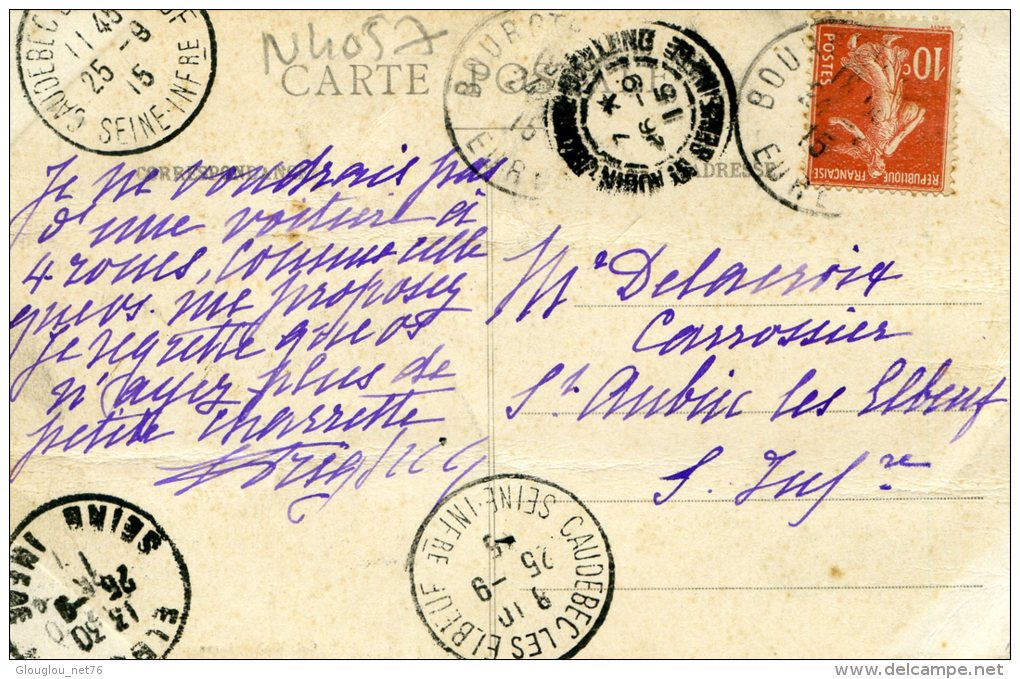 N4057
CARTE POSTALE
CORRESPONDANCE
ADRESSE
Je ne voudrais pas
d'une voiture à
4 roues, comme celle
que vs. me proposez
je regrette que vs
n'ayez plus de
petite charrette
Mr Delacroix
Carrossier
St Aubin les Elbeuf
S. Infre
CAUDEBEC
11 45
25 -9
15
SEINE-INFRE
BOURGT
EURE
7 *
26 -9
15
BOU
15
EURE
10c
POSTES
REPUBLIQUE FRANÇAISE
CAUDEBEC LES ELBEUF
SEINE-INFRE
8 10
25 -9
15
ELB
13 30
26 -9
SEINE INFRE
Glouglou_net76
delcampe.net